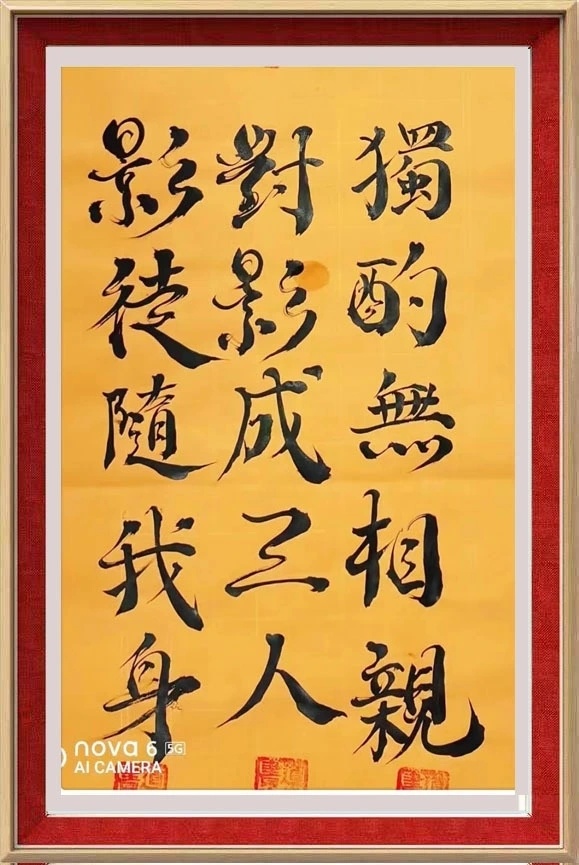 獨酌無相親
對影成三人
影徒隨我身
nova 6 5G
AI CAMERA